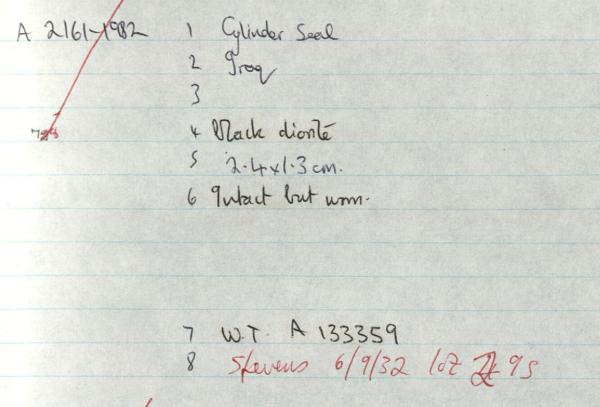 A 2161-1982 1 Cylinder Seal
2 Iraq
3
4 Black diorite
5 2.4x1.3cm.
6 Intact but worn.
7 W.T. A 133359
8 Stevens 6/9/32 lot